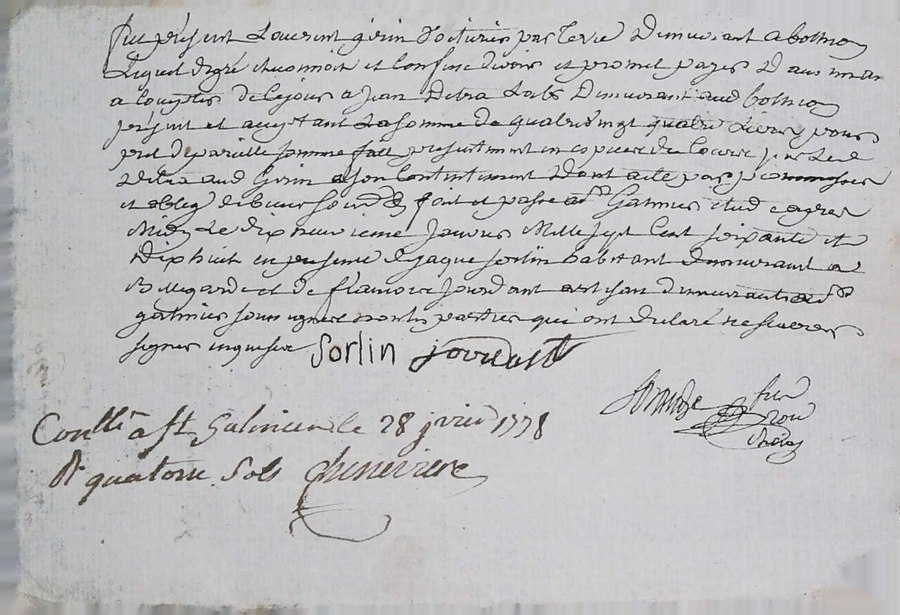 fut présent Laurent girin voiturier par terre demeurant a bothion
Lequel de gré reconnoit et confesse devoir et promet payer d'aujourd
a compter de ce jour a jean detra Labr demeurant aud bothion
présent et acceptant La somme de quatrevingt quatre Livres pour
pret de pareille somme fait presentement en especes de cours par led
detra aud girin a son contentement dont acte par promesses
et oblig de biens soumis fait et passé a st Galmier etude apres
Midy Le dix neuvieme janvier Mille sept Cent soixante et
dix huit en presence de jaque sorlin habitant demeurant a
Bellegarde et de jourdant artisan demeurant aud st
galmier soussignes non les parties qui ont declaré ne scavoir
signer enquises Sorlin jourdant
Conllé a st Galmier le 28 jvier 1778
R quatorze Sols Cheneviere